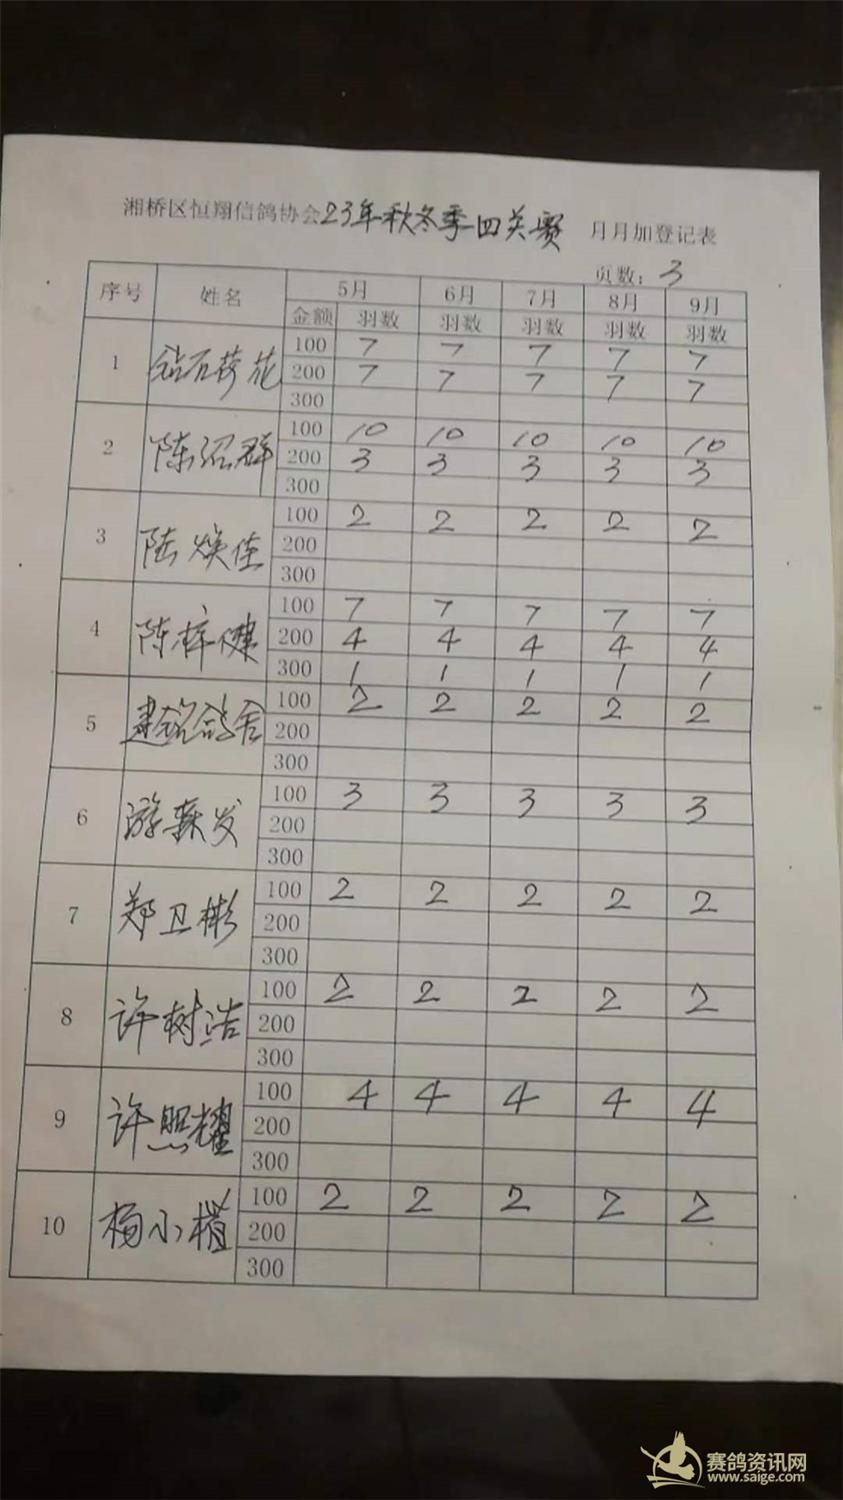 湘桥区恒翔信鸽协会23年秋冬季四关赛 月月加登记表
页数：3
序号 姓名 5月 6月 7月 8月 9月
金额 羽数 羽数 羽数 羽数 羽数
1 钻石荷花 100 7 7 7 7 7
200 7 7 7 7 7
300
2 陈沼群 100 10 10 10 10 10
200 3 3 3 3 3
300
3 陆焕佳 100 2 2 2 2 2
200
300
4 陈梓健 100 7 7 7 7 7
200 4 4 4 4 4
300 1 1 1 1 1
5 建铭鸽舍 100 2 2 2 2 2
200
300
6 游森发 100 3 3 3 3 3
200
300
7 郑卫彬 100 2 2 2 2 2
200
300
8 许树浩 100 2 2 2 2 2
200
300
9 许照耀 100 4 4 4 4 4
200
300
10 杨小 100 2 2 2 2 2
200
300
赛鸽资讯网
www.saige.com